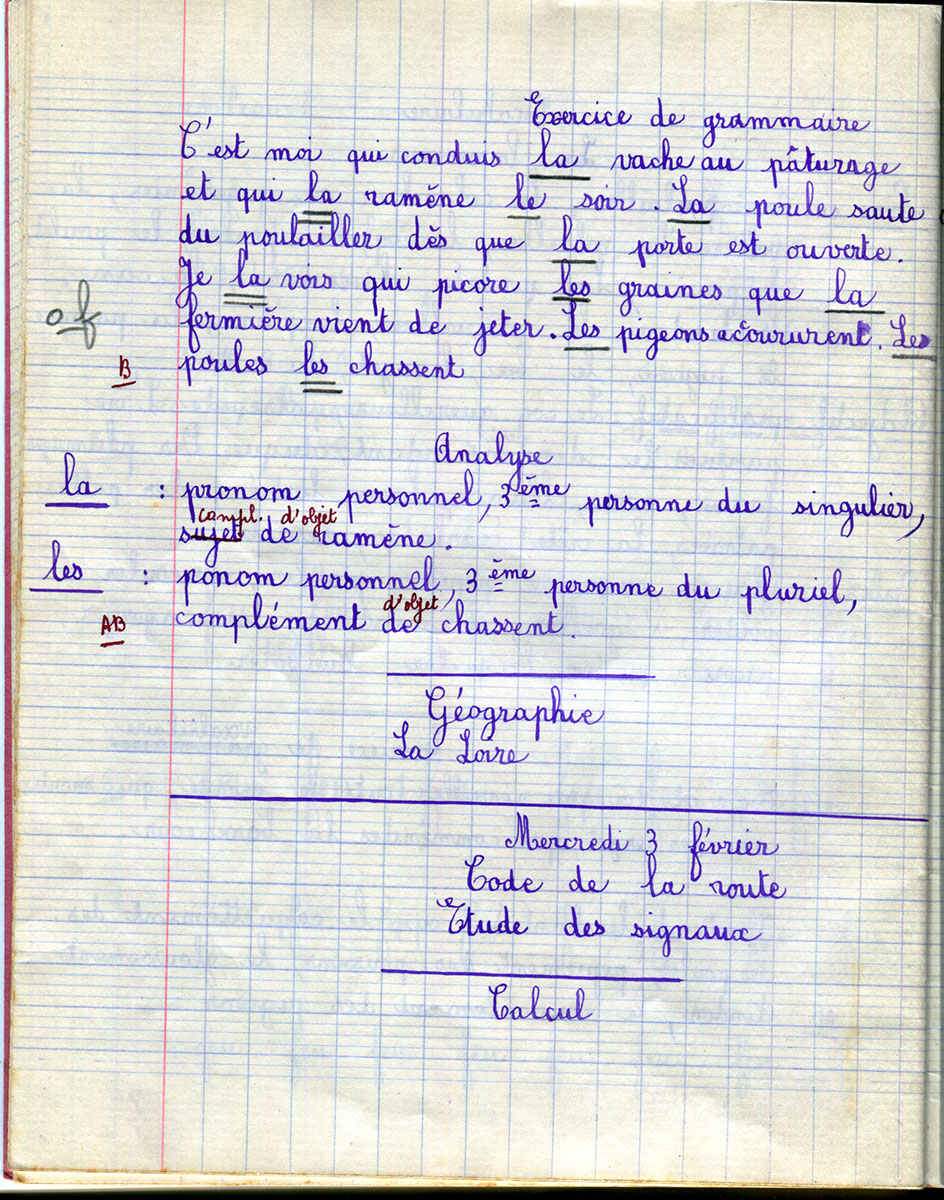 Exercice de grammaire
C'est moi qui conduis la vache au pâturage
et qui la ramène le soir. La poule saute
du poulailler dès que la porte est ouverte.
Je la vois qui picore les graines que la
fermière vient de jeter. Les pigeons accourent. Les
poules les chassent
of
B
Analyse
la : pronom personnel, 3ème personne du singulier,
compl. d'objet
sujet de ramène.
les : ponom personnel, 3ème personne du pluriel,
d'objet
complément de chassent.
AB
Géographie
La Loire
Mercredi 3 février
Code de la route
Etude des signaux
Calcul